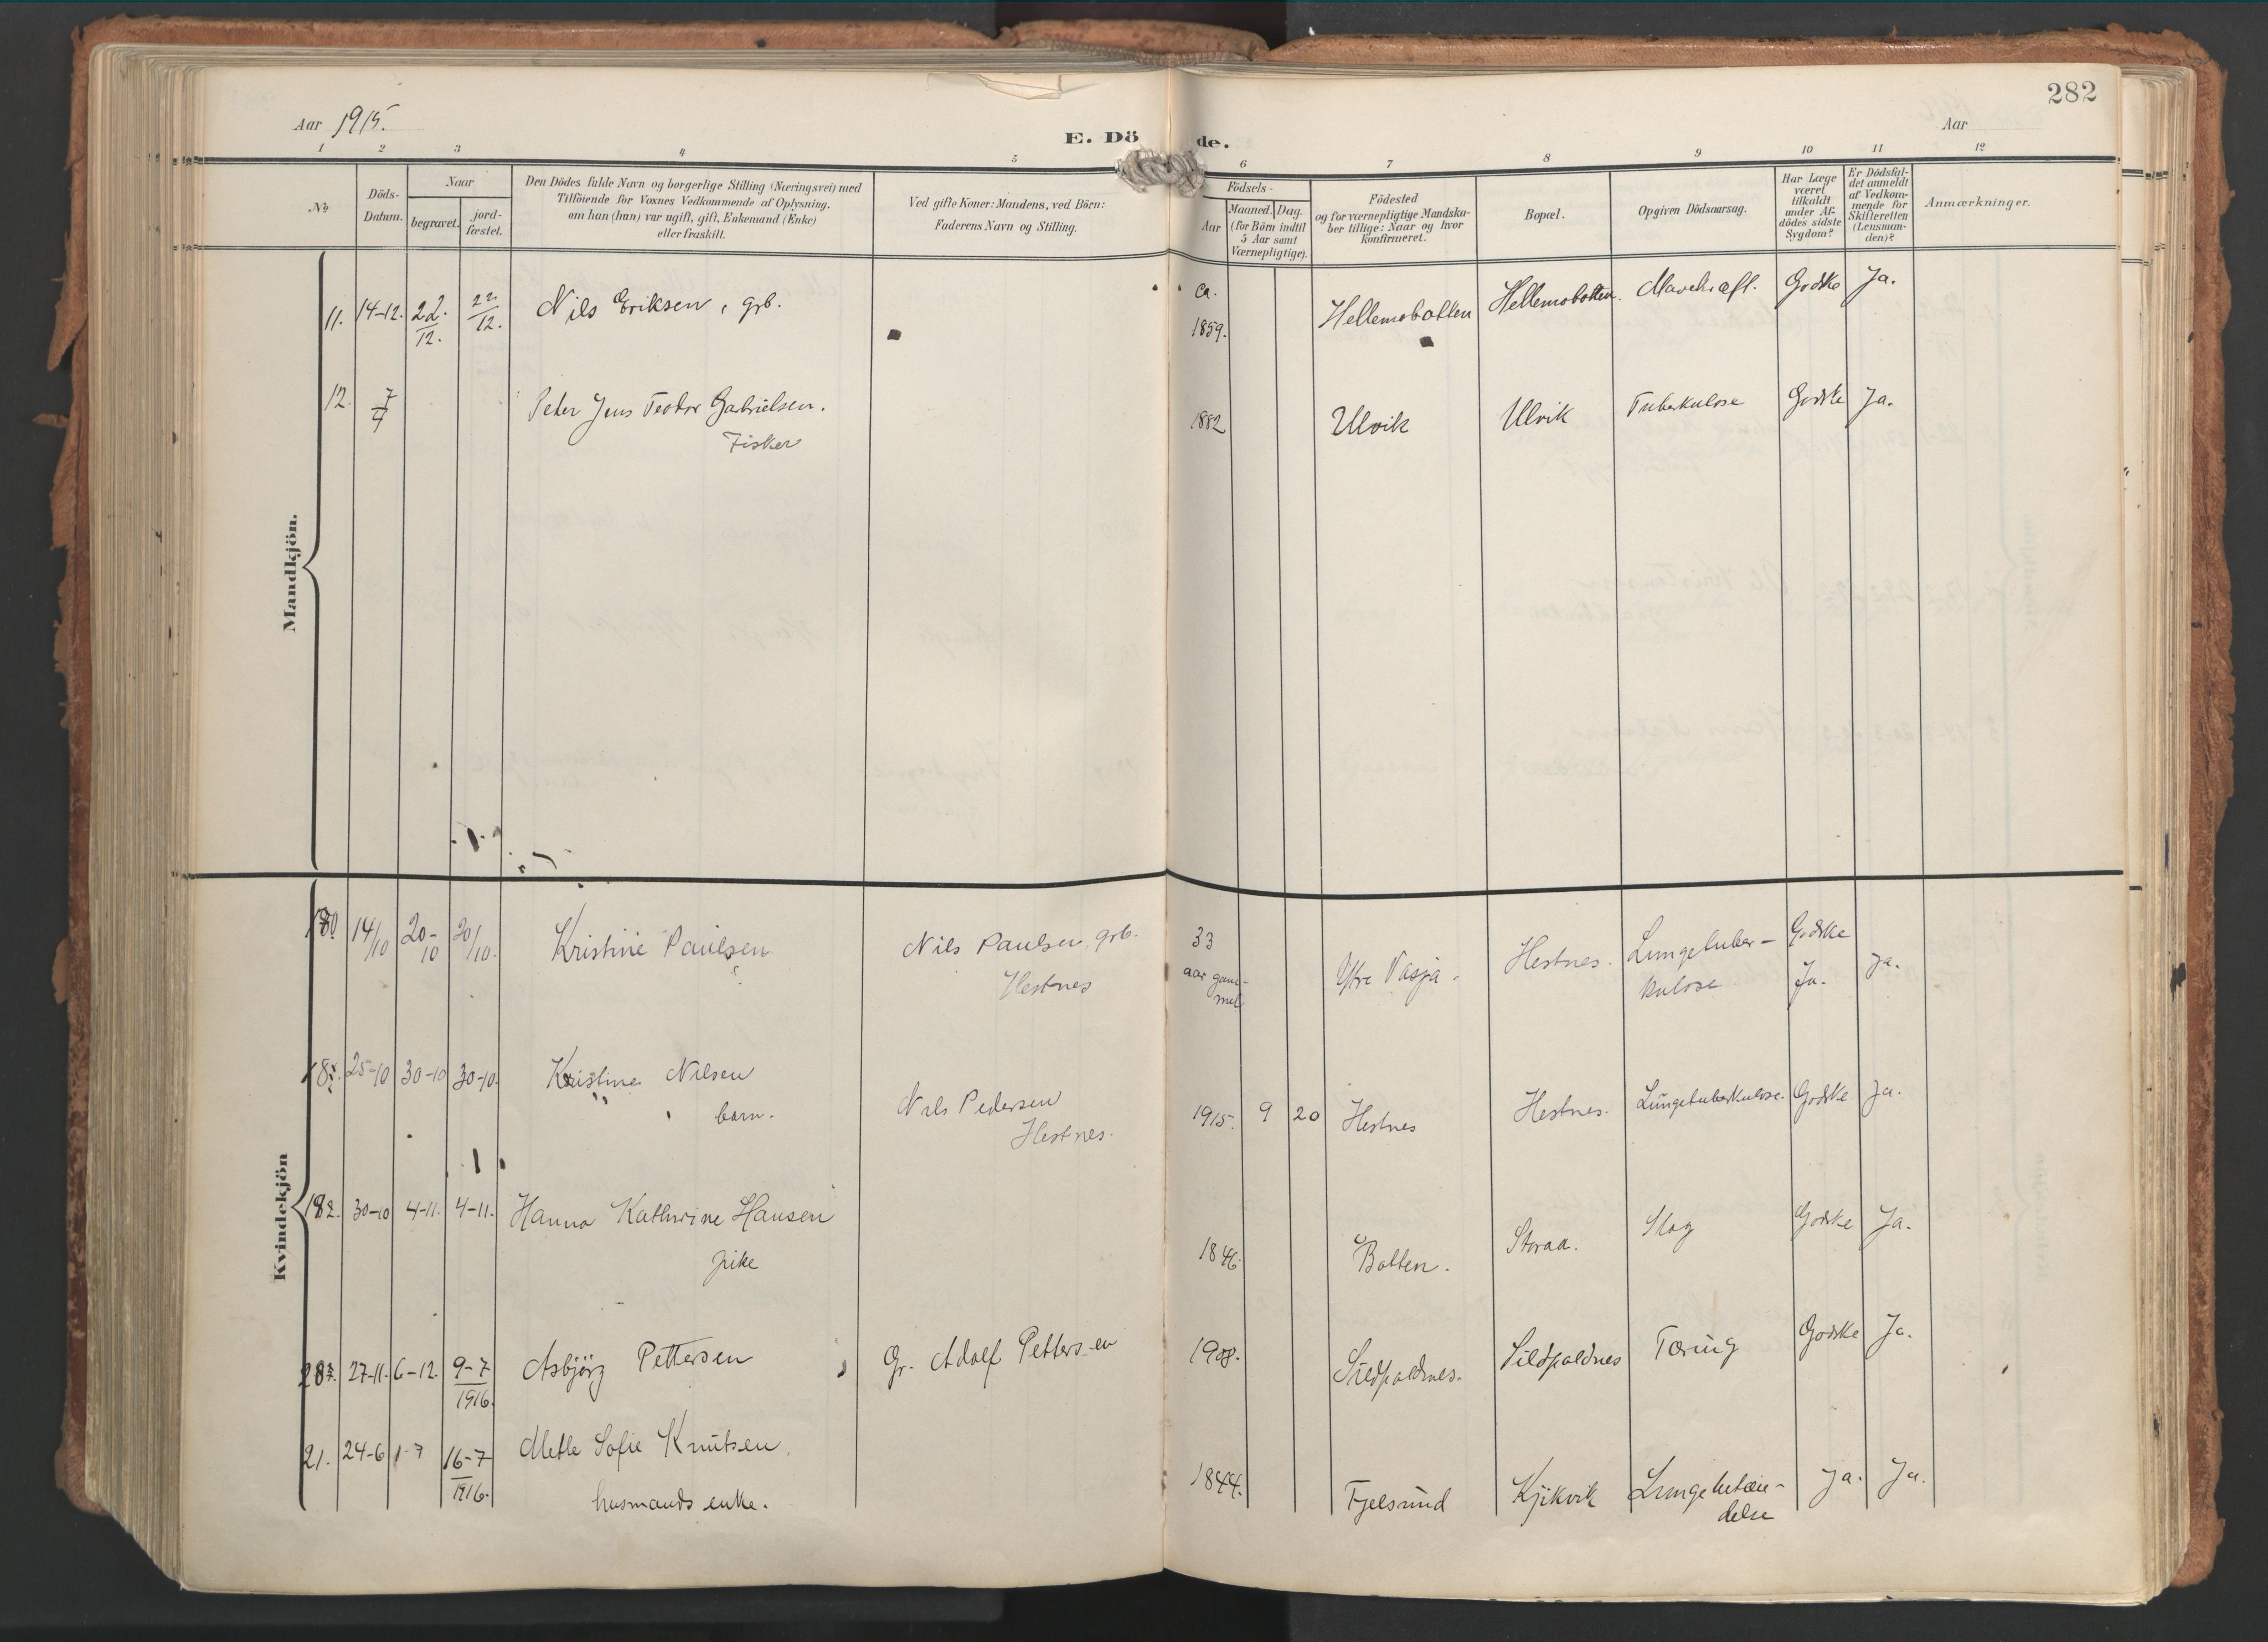 282
Aar 1915.
Aar
E. Dö de.
1 2 3 4 5 6 7 8 9 10 11 12
No
Döds-
Datum.
Naar
begravet.
jord-
fæstet.
Den Dödes fulde Navn og borgerlige Stilling (Næringsvei) med
Tilföiende for Voxnes Vedkommende af Oplysning,
om han (hun) var ugift, gift, Enkemand (Enke)
eller fraskilt.
Ved gifte Koner: Mandens, ved Börn:
Faderens Navn og Stilling.
Födsels-
Aar
Maaned. Dag.
(for Börn indtil
5 Aar samt
Værnepligtige).
Födested
og for værnepligtige Mandska-
ber tillige: Naar og hvor
konfirmeret.
Bopæl.
Opgiven Dödsaarsag.
Har Læge
været
tilkaldt
under Af-
dödes sidste
Sygdom?
Er Dödsfal-
det anmeldt
af Vedkom-
mende for
Skifteretten
(Lensman-
den)?
Anmærkninger.
Mandkjön.
11. 14-12. 22/12. 22/12. Nils Eriksen, grb. ca. 1859. Hellemobotten Hellemobotten. Godske Ja.
12. Peter Jens Teodor Gabrielsen. 1882 Ulvik Ulvik Tuberkulose Godske Ja.
Fisker
Kvindekjön
14/10 20-10 20/10. Kristine Paulsen Nils Paulsen, grb. 33 Ytre Hestnes. Lungetuber- Godske
Hestnes aar gam- kulose Ja. Ja.
mel
25-10 30-10 30-10. Kristine Nilsen Nils Pedersen 1915. 9 20 Hestnes Hestnes. Lungetuberkulose. Godske Ja.
barn. Hestnes.
30-10 4-11. 4-11. Hanna Kathrine Hansen 1846. Botten. Storaa. Slag Godske Ja.
pike
27-11. 6-12. 9-7/1916. Asbjörg Pettersen Gr. Adolf Pettersen 1908. Sildpoldnes. Sildpoldnes Tæring Godske Ja.
21. 24-6 1-7 16-7/1916. Mette Sofie Knutsen. 1844. Fjelsund Kjikvik Lungebetæn- Ja. Ja.
husmands enke. delse